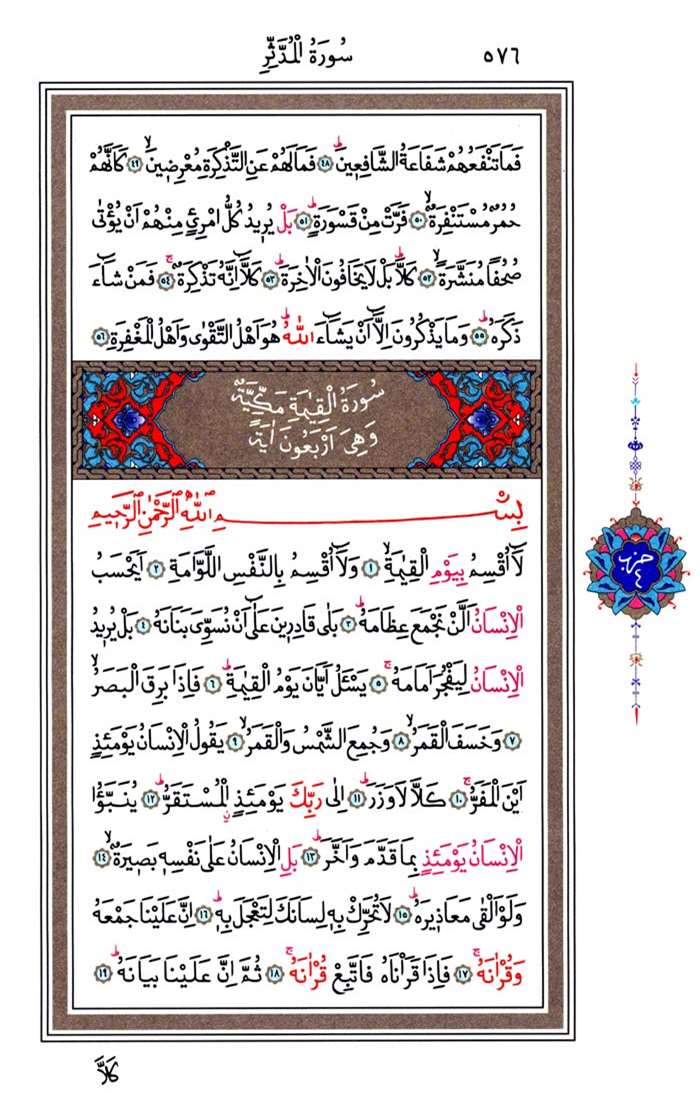 ٥٧٦ سُورَةُ الْمُدَّثِّرِ
فَمَا تَنْفَعُهُمْ شَفَاعَةُ الشَّافِعٖينَؕ ﴿٤٨﴾ فَمَا لَهُمْ عَنِ التَّذْكِرَةِ مُعْرِضٖينَۙ ﴿٤٩﴾ كَاَنَّهُمْ
حُمُرٌ مُسْتَنْفِرَةٌۙ ﴿٥٠﴾ فَرَّتْ مِنْ قَسْوَرَةٍؕ ﴿٥١﴾ بَلْ يُرٖيدُ كُلُّ امْرِئٍ مِنْهُمْ اَنْ يُؤْتٰى
صُحُفًا مُنَشَّرَةًۙ ﴿٥٢﴾ كَلَّاؕ بَلْ لَا يَخَافُونَ الْاٰخِرَةَؕ ﴿٥٣﴾ كَلَّٓا اِنَّهُ تَذْكِرَةٌۚ ﴿٥٤﴾ فَمَنْ شَٓاءَ
ذَكَرَهُؕ ﴿٥٥﴾ وَمَا يَذْكُرُونَ اِلَّٓا اَنْ يَشَٓاءَ اللّٰهُؕ هُوَ اَهْلُ التَّقْوٰى وَاَهْلُ الْمَغْفِرَةِ ﴿٥٦﴾
سُورَةُ الْقِيٰمَةِ مَكِّيَّةٌ
وَهِيَ اَرْبَعُونَ اٰيَةً
بِسْمِ اللّٰهِ الرَّحْمٰنِ الرَّحٖيمِ
لَٓا اُقْسِمُ بِيَوْمِ الْقِيٰمَةِۙ ﴿١﴾ وَلَٓا اُقْسِمُ بِالنَّفْسِ اللَّوَّامَةِ ﴿٢﴾ اَيَحْسَبُ
الْاِنْسَانُ اَلَّنْ نَجْمَعَ عِظَامَهُؕ ﴿٣﴾ بَلٰى قَادِرٖينَ عَلٰٓى اَنْ نُسَوِّيَ بَنَانَهُ ﴿٤﴾ بَلْ يُرٖيدُ
الْاِنْسَانُ لِيَفْجُرَ اَمَامَهُۚ ﴿٥﴾ يَسْـَٔلُ اَيَّانَ يَوْمُ الْقِيٰمَةِؕ ﴿٦﴾ فَاِذَا بَرِقَ الْبَصَرُۙ
﴿٧﴾ وَخَسَفَ الْقَمَرُۙ ﴿٨﴾ وَجُمِعَ الشَّمْسُ وَالْقَمَرُۙ ﴿٩﴾ يَقُولُ الْاِنْسَانُ يَوْمَئِذٍ
اَيْنَ الْمَفَرُّۚ ﴿١٠﴾ كَلَّا لَا وَزَرَؕ ﴿١١﴾ اِلٰى رَبِّكَ يَوْمَئِذٍ الْمُسْتَقَرُّؕ ﴿١٢﴾ يُنَبَّؤُا
الْاِنْسَانُ يَوْمَئِذٍ بِمَا قَدَّمَ وَاَخَّرَؕ ﴿١٣﴾ بَلِ الْاِنْسَانُ عَلٰى نَفْسِهٖ بَصٖيرَةٌۙ ﴿١٤﴾
وَلَوْ اَلْقٰى مَعَاذٖيرَهُؕ ﴿١٥﴾ لَا تُحَرِّكْ بِهٖ لِسَانَكَ لِتَعْجَلَ بِهٖؕ ﴿١٦﴾ اِنَّ عَلَيْنَا جَمْعَهُ
وَقُرْاٰنَهُۚ ﴿١٧﴾ فَاِذَا قَرَاْنَاهُ فَاتَّبِعْ قُرْاٰنَهُۚ ﴿١٨﴾ ثُمَّ اِنَّ عَلَيْنَا بَيَانَهُؕ ﴿١٩﴾
كَلَّا
حزب
٤